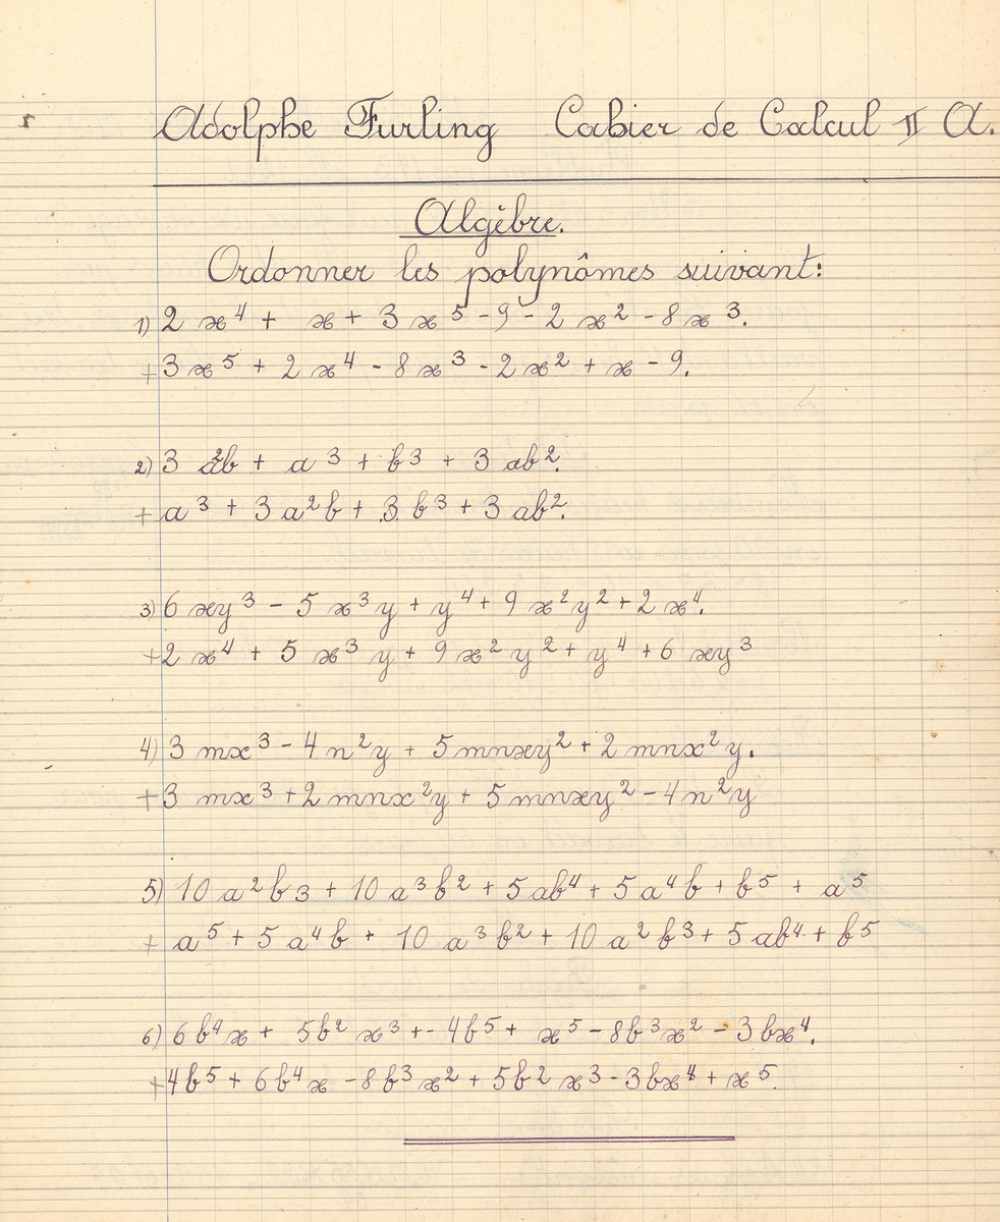 Adolphe Furling Cahier de Calcul II A.
Algèbre.
Ordonner les polynômes suivant:
1) 2 x⁴ + x + 3 x⁵ - 9 - 2 x² - 8 x³.
+ 3 x⁵ + 2 x⁴ - 8 x³ - 2 x² + x - 9.
2) 3 a²b + a³ + b³ + 3 ab².
+ a³ + 3 a²b + 3 b³ + 3 ab².
3) 6 xy³ - 5 x³y + y⁴ + 9 x²y² + 2 x⁴.
+ 2 x⁴ + 5 x³ y + 9 x² y² + y⁴ + 6 xy³
4) 3 mx³ - 4 n²y + 5 mnxy² + 2 mnx² y.
+ 3 mx³ + 2 mnx²y + 5 mnxy² - 4 n²y
5) 10 a² b3 + 10 a³ b² + 5 ab⁴ + 5 a⁴ b + b⁵ + a⁵
+ a⁵ + 5 a⁴ b + 10 a³ b² + 10 a² b³ + 5 ab⁴ + b⁵
6) 6 b⁴x + 5b² x³ + - 4b⁵ + x⁵ - 8b³x² - 3 bx⁴.
+ 4b⁵ + 6b⁴x - 8 b³ x² + 5b² x³ - 3bx⁴ + x⁵.